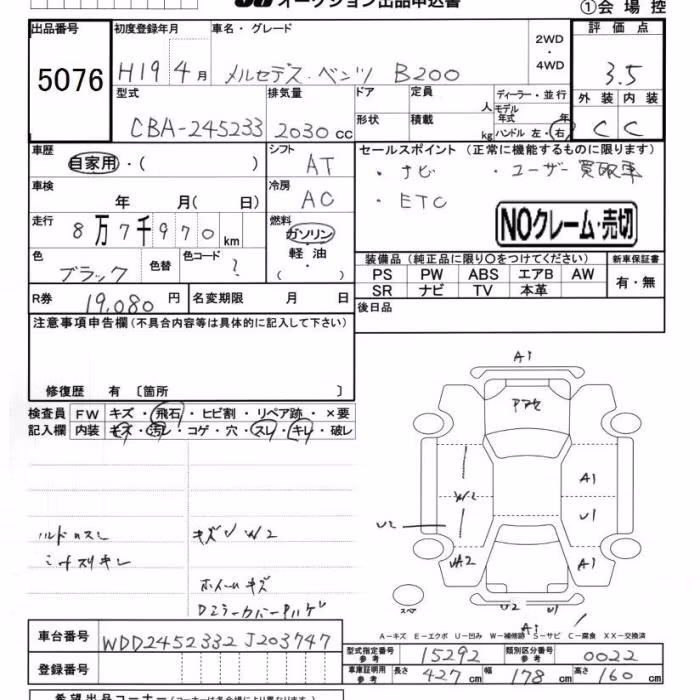 オークション出品申込書
①会場控
出品番号
5076
初度登録年月
H19 4月
車名・グレード
メルセデス・ベンツ B200
2WD
・
4WD
評価点
3.5
外装 内装
C C
型式
CBA-245233
排気量
2030 cc
ドア
形状
定員
人
積載
kg
ディーラー・並行
モデル年式 年
ハンドル 左・右
車歴
自家用・( )
シフト
AT
車検
年 月( 日)
冷房
AC
走行
8万7千970km
燃料
ガソリン
軽油
( )
色
ブラック
色替
色コード
?
R券
19,080円
名変期限 月 日
セールスポイント (正常に機能するものに限ります)
・ナビ ・ユーザー買取車
・ETC
NOクレーム・売切
装備品(純正品に限り○をつけてください)
新車保証書
PS PW ABS エアB AW
SR ナビ TV 本革
有・無
後日品
注意事項申告欄(不具合内容等は具体的に記入して下さい)
修復歴 有〔箇所 〕
検査員記入欄
FW キズ・飛石・ヒビ割・リペア跡・×要
内装 キズ・汚レ・コゲ・穴・スレ・キレ・破レ
キズ W2
ホイールキズ
A1
A1
W2
U1
U2
UA2
A1
U2 U1
A1
スペア
A-キズ E-エクボ U-凹み W-補修跡 S-サビ C-腐食 XX-交換済
車台番号
WDD2452332J203747
登録番号
型式指定番号 参考
15292
類別区分番号 参考
0022
車庫証明用 参考
長さ 427cm 幅 178cm 高さ 160cm
希望出品コーナー